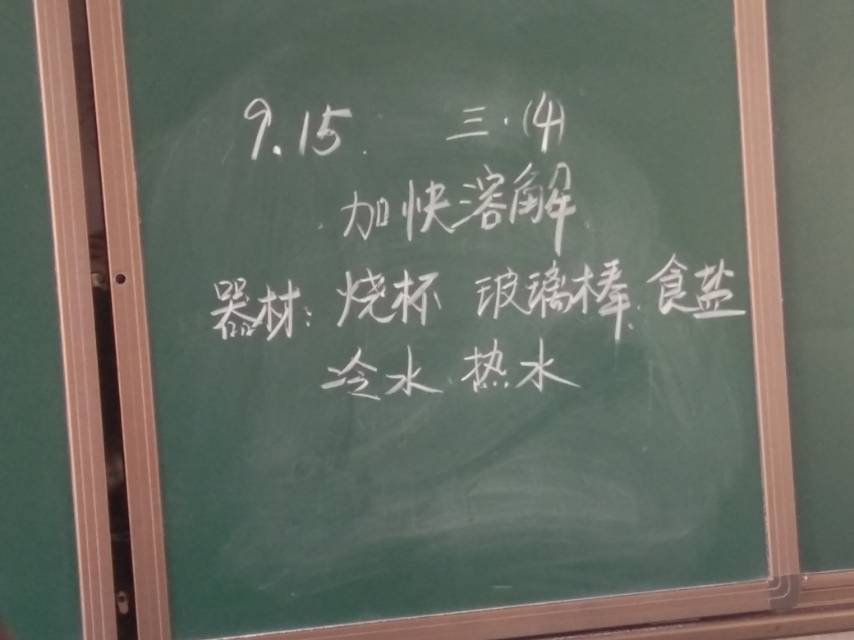 9.15 三.(4)
加快溶解
器材:烧杯 玻璃棒 食盐
冷水 热水